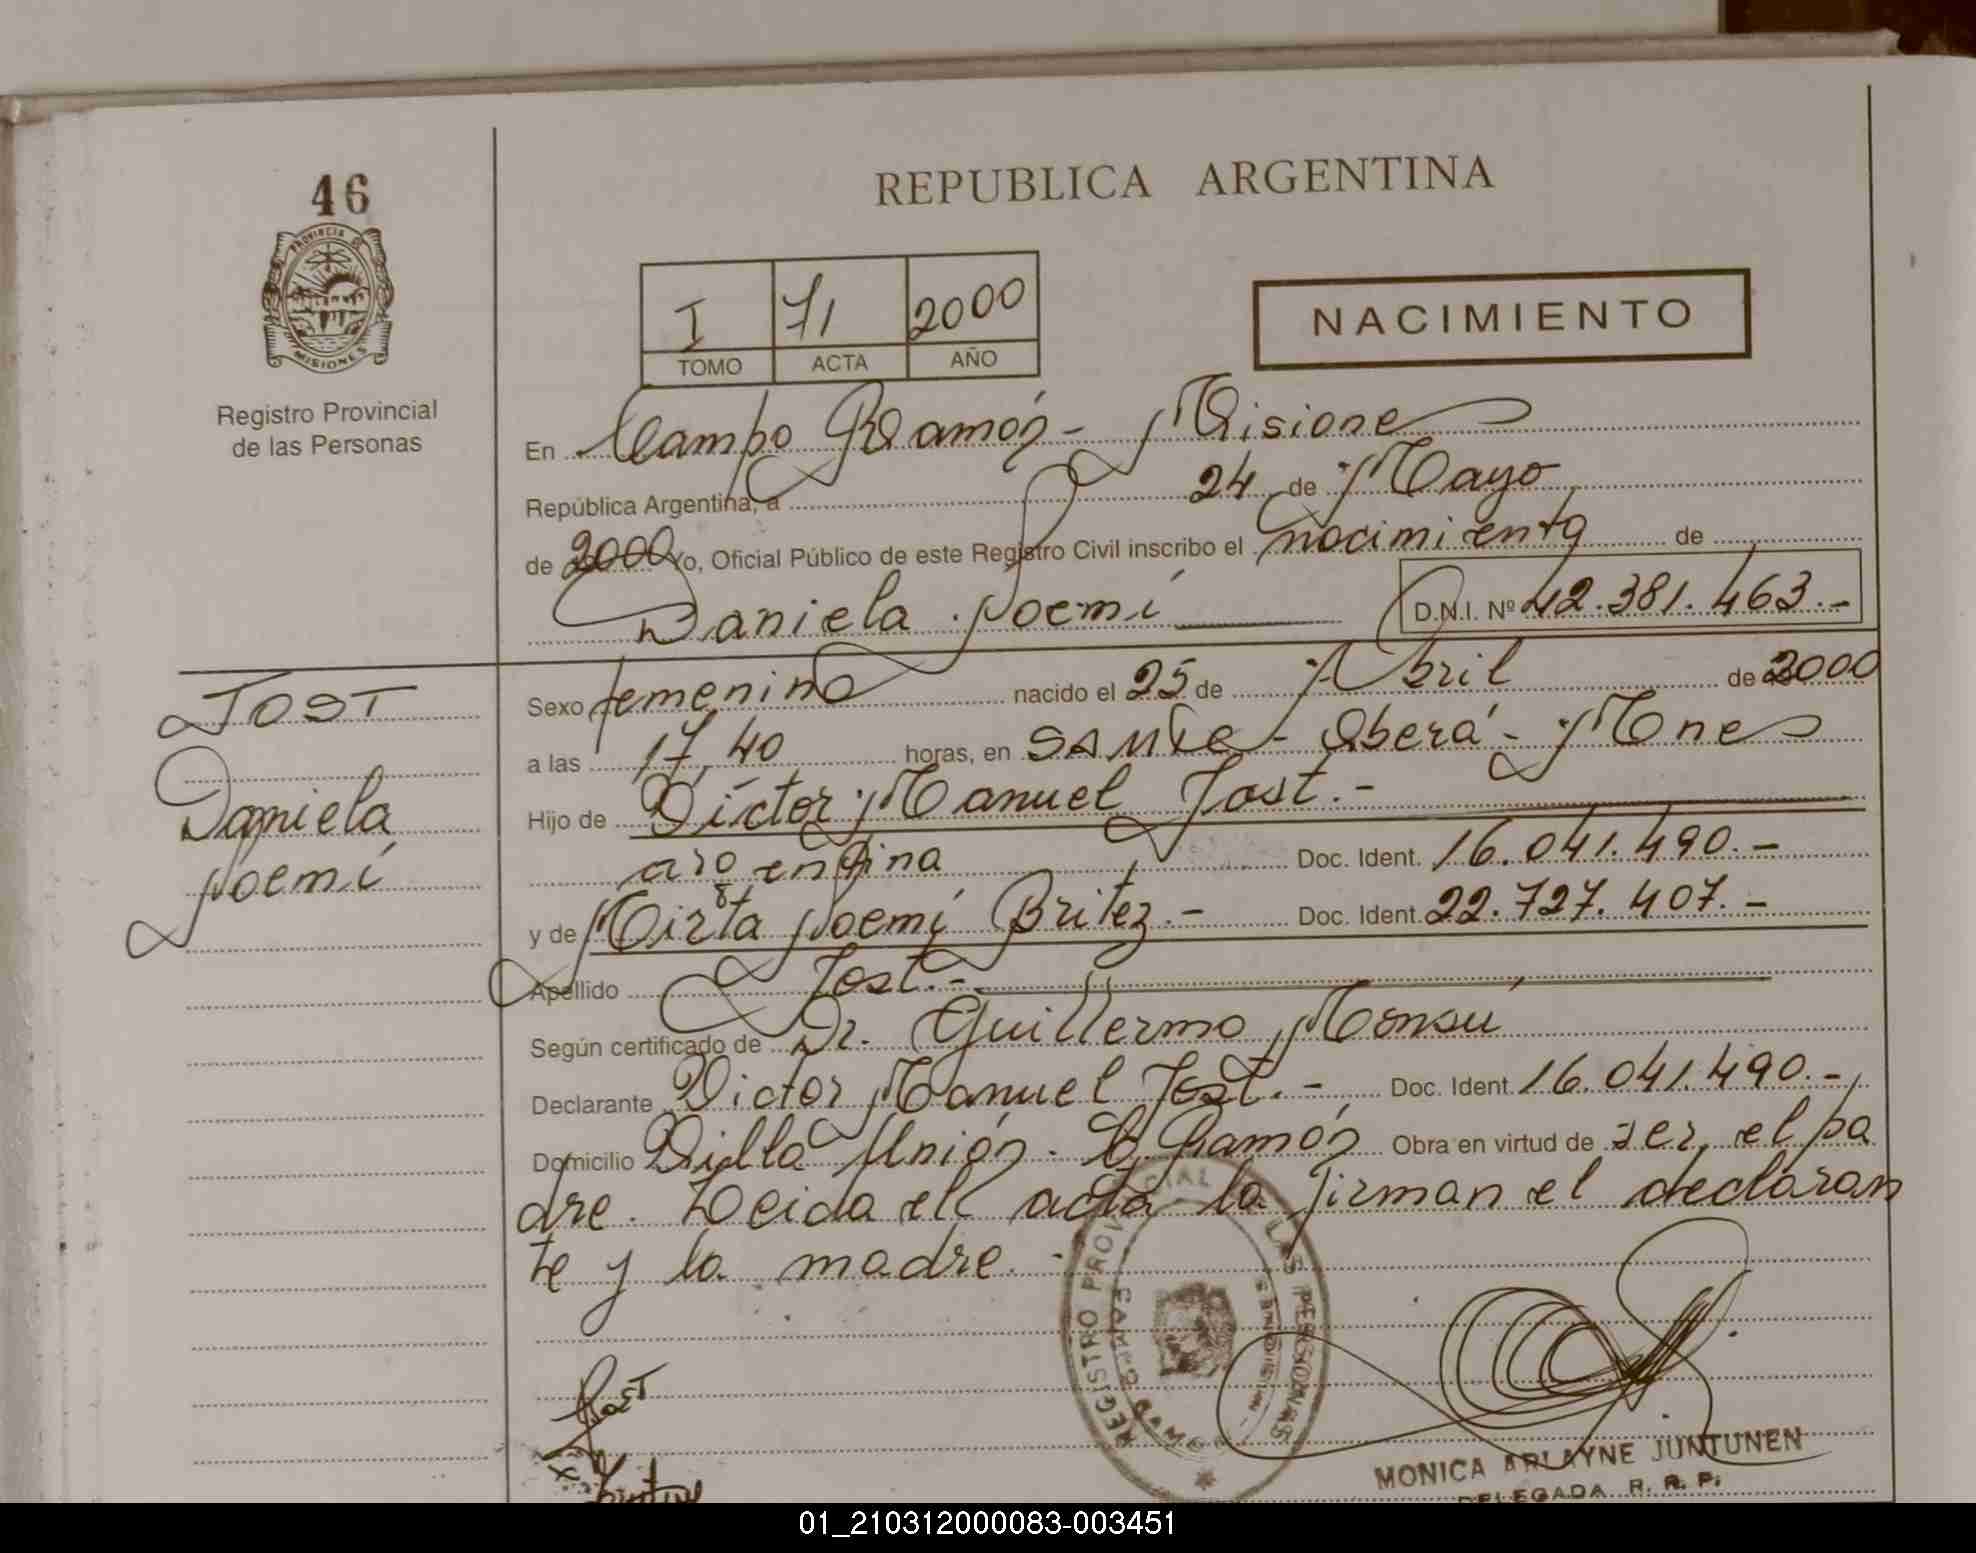 46
PROVINCIA DE
MISIONES
Registro Provincial
de las Personas
REPUBLICA ARGENTINA
I 71 2000
TOMO ACTA AÑO
NACIMIENTO
En Campo Ramón - Misiones
República Argentina, a 24 de Mayo
de 2000 Yo, Oficial Público de este Registro Civil inscribo el nacimiento de
Daniela Noemí D.N.I. Nº 42.381.463.-
JOST
Daniela
Noemí
Sexo femenino nacido el 25 de Abril de 2000
a las 17,40 horas, en - Oberá - Mnes
Hijo de Víctor Manuel Jost.-
argentina Doc. Ident. 16.041.490.-
y de Mirta Noemí Britez.- Doc. Ident. 22.727.407.-
Apellido Jost.-
Según certificado de Dr. Guillermo Monsú
Declarante Victor Manuel Jost.- Doc. Ident. 16.041.490.-
Domicilio Villa Unión - C. Ramón Obra en virtud de ser el pa
dre. Leida el acta la firman el declaran
te y la madre.-
REGISTRO PROVINCIAL LAS PERSONAS
CAMPO RAMON - MISIONES
Jost
MONICA ARLAYNE JUNTUNEN
DELEGADA R. R. P.
01_210312000083-003451